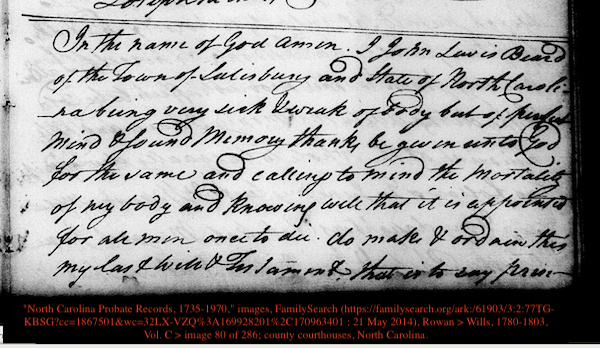 In the name of God amen. I John Lewis Beard
of the Town of Salisbury and State of North Caroli-
na being very sick & weak of body but of perfect
mind & sound Memory thanks be given unto God
for the same and calling to mind the Mortality
of my body and knowing well that it is appointed
for all men once to die. do make & ordain this
my last Will & Testament. that is to say
"North Carolina Probate Records, 1735-1970," images, FamilySearch (https://familysearch.org/ark:/61903/3:2:77TG-
KBSG?cc=1867501&wc=32LX-VZQ%3A169928201%2C170963401 : 21 May 2014), Rowan > Wills, 1780-1803,
Vol. C > image 80 of 286; county courthouses, North Carolina.